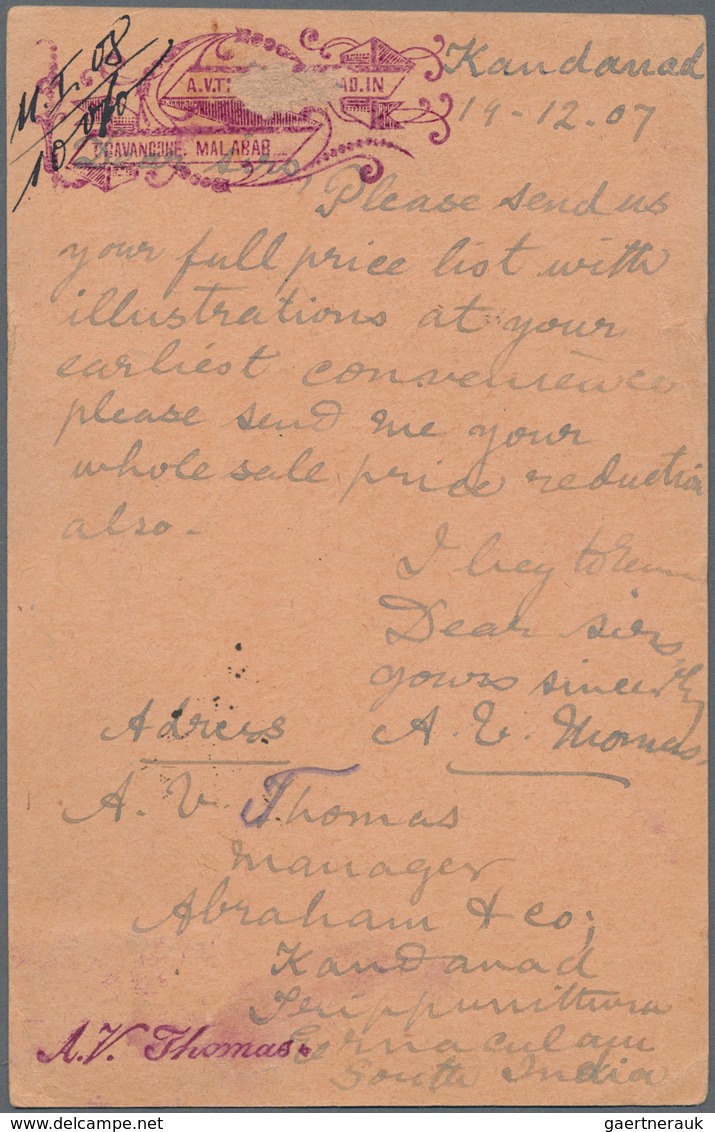 11.I.08
10
A.V.T AD.IN
TRAVANCORE. MALABAR
Kandanad
19-12.07
Dear sirs,
Please send us
your full price list with
illustrations at your
earliest convenience
please send me your
whole sale price reduction
also.
I beg to
Dear sirs,
yours sincerely
A. V. Thomas.
Adress
A. V. Thomas
Manager
Abraham & Co;
Kandanad
Trippunittura
Ernaculam
South India
A.V. Thomas.
gaertnerauk